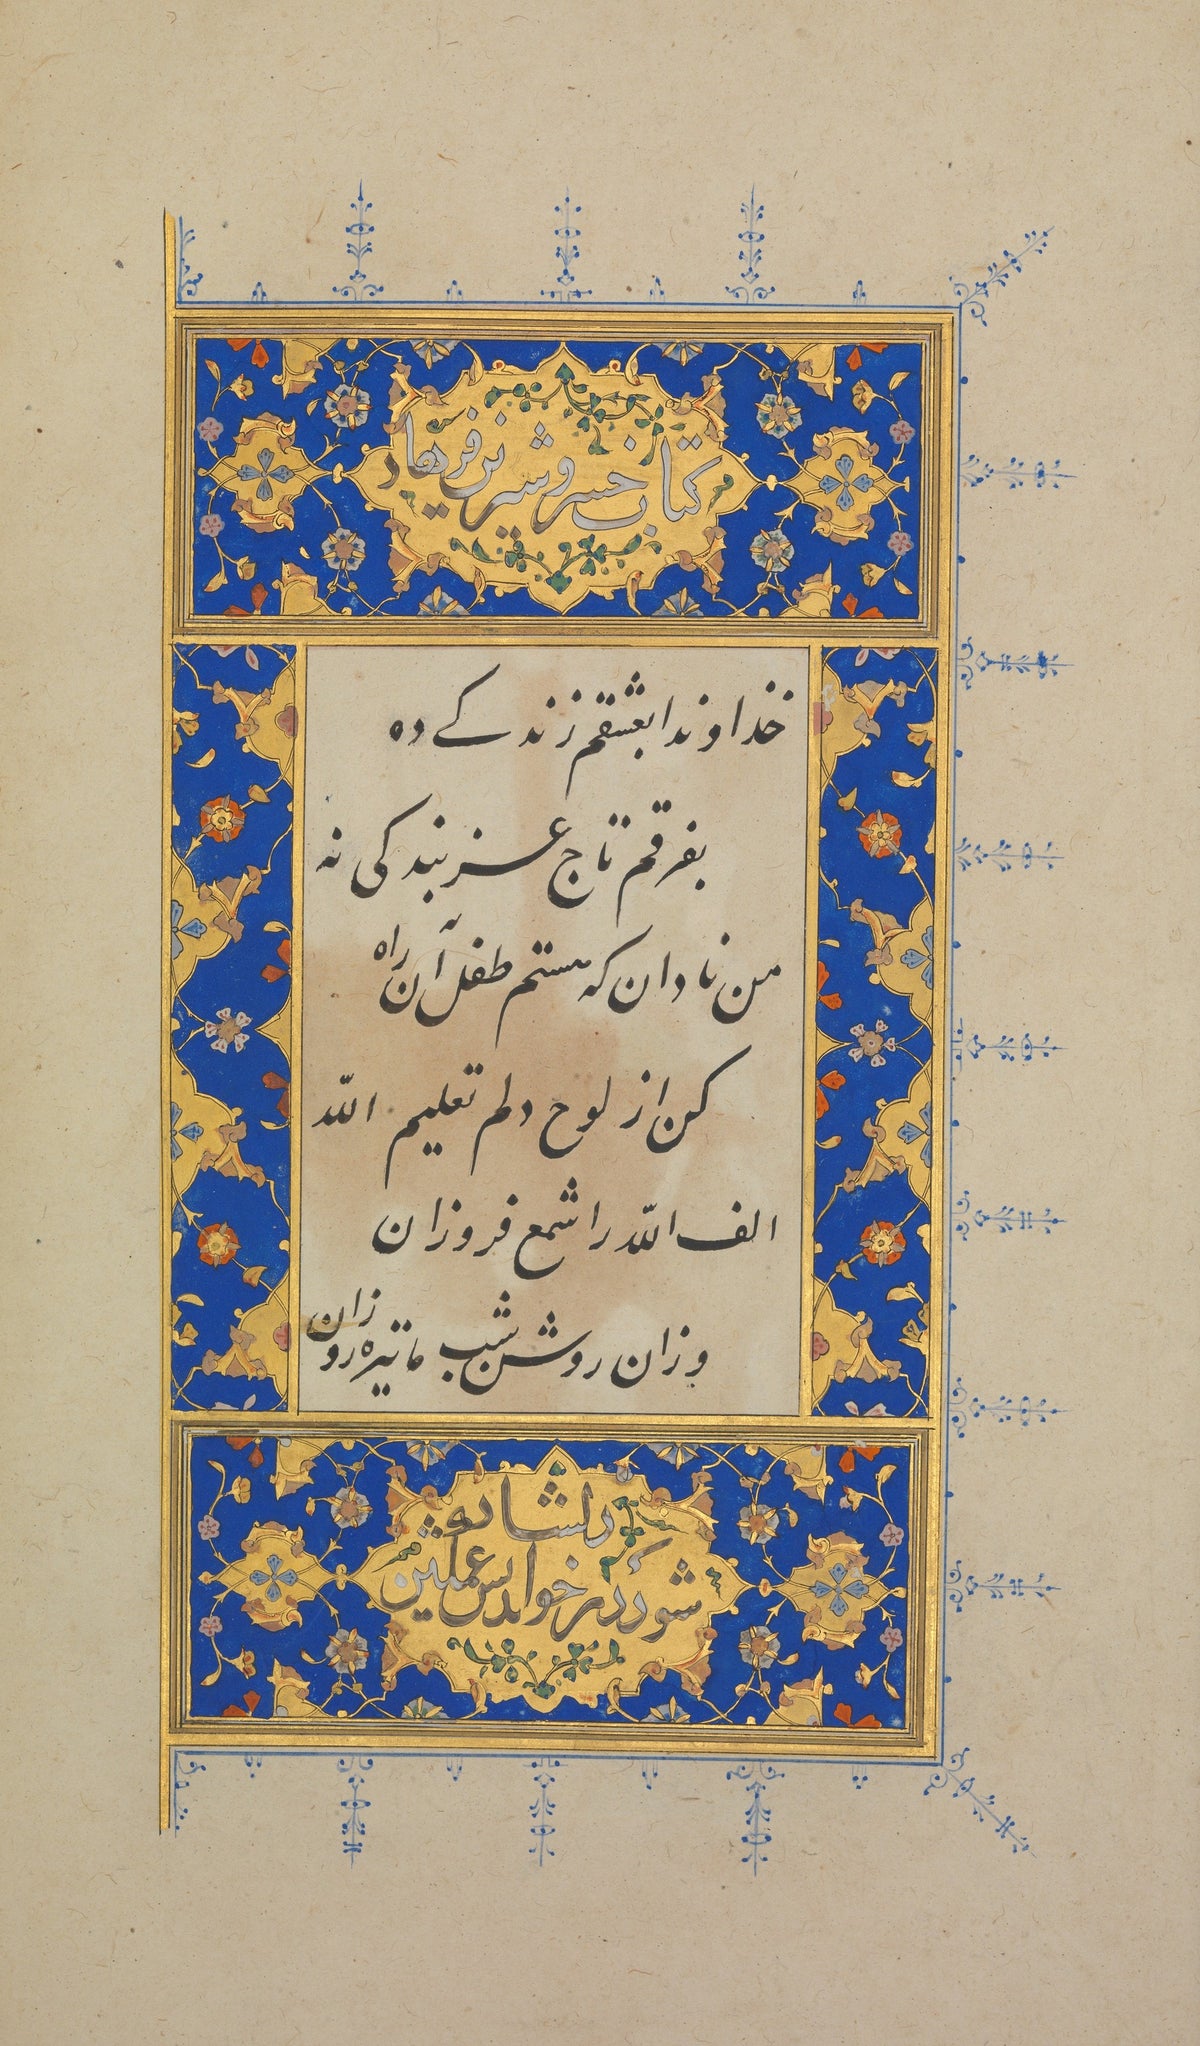 کتاب خسرو شیرین فرهاد
خداوندا بعشقم زندگے ده
بفرقم تاج عز بندگی نه
من نادان که هستم طفل آن راه
کن از لوح دلم تعلیم الله
الف الله را شمع فروزان
وزان روشن شب ما تیره روزان
دلشاد
شود در خواندنش